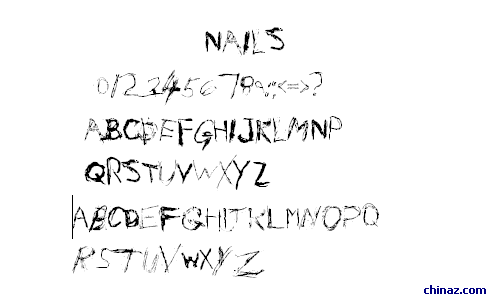 NAILS
0123456789:;<=>?
ABCDEFGHIJKLMNOP
QRSTUVWXYZ
ABCDEFGHIJKLMNOPQ
RSTUVWXYZ
chinaz.com